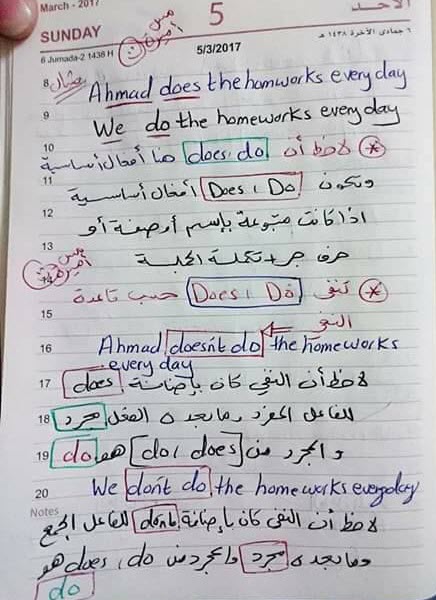 March - 2017
5
الأحـــد
SUNDAY
6 Jumada-2 1438 H
5/3/2017
٦ جمادى الآخرة ١٤٣٨ هـ
مس
أميرة
8 مثال Ahmad does the homworks every day
9 We do the homeworks every day
10 * لاحظ أن does, do هنا أفعال أساسية
11 وتكون Does, Do أفعال أساسية
12 اذا كانت متبوعة بإسم أو صفة أو
13 حرف جر + تكملة الجملة
مس
أميرة
14 * تنفى Does, Do حسب قاعدة
15 النفي
16 Ahmad doesn't do the homeworks
every day
17 لاحظ أن النفي كان بإضافة does
18 للفاعل المفرد وما بعده الفعل مجرد
19 والمجرد من [do, does] هو do
20 We don't do the homeworks everyday
Notes
لاحظ أن النفي كان بإضافة don't للفاعل الجمع
وما بعده مجرد والمجرد من does, do هو
do